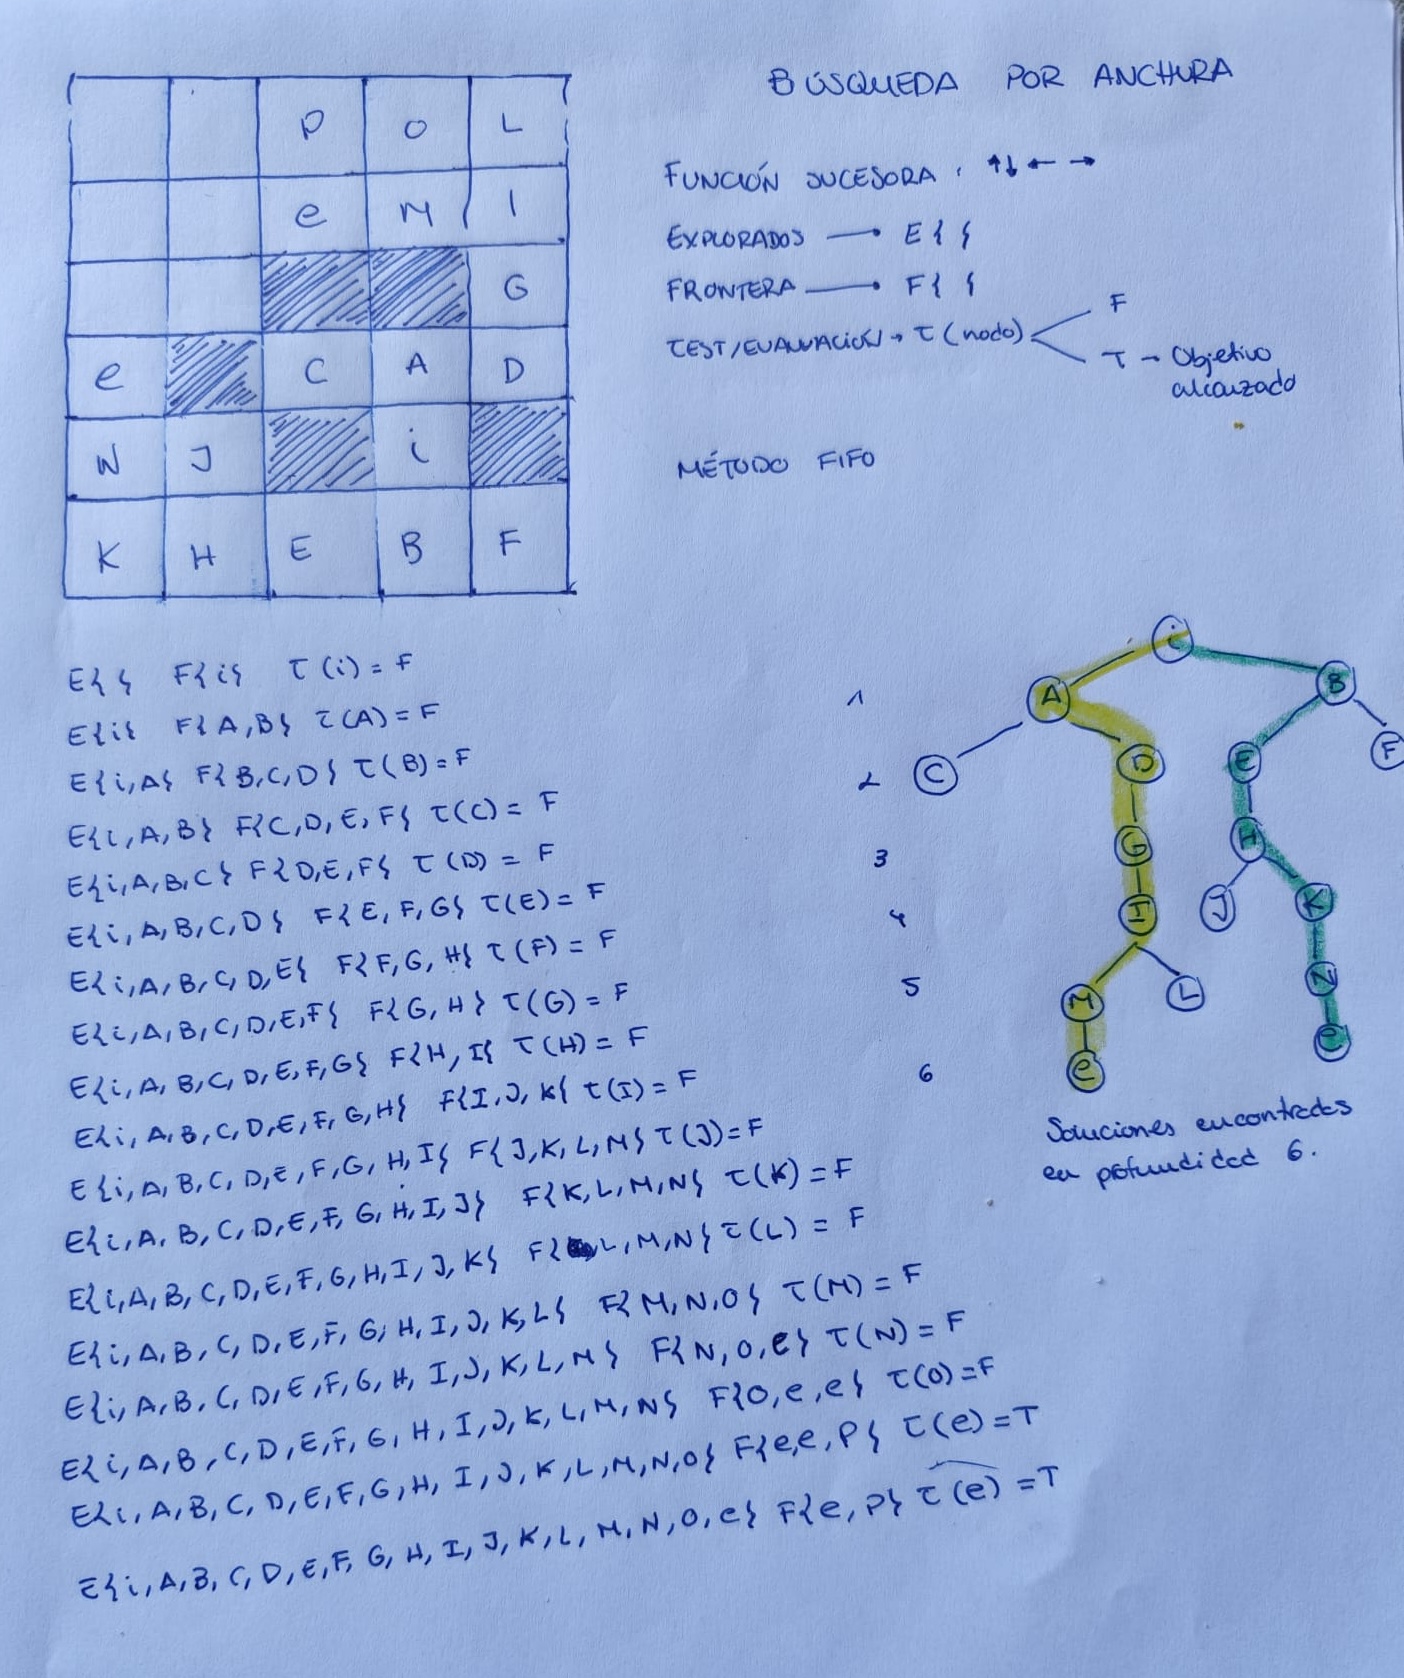 BÚSQUEDA POR ANCHURA
P O L
e M I
G
e C A D
N J i
K H E B F
FUNCIÓN SUCESORA : ↑↓ ← →
EXPLORADOS → E{ }
FRONTERA → F{ }
TEST/EVALUACIÓN → T (nodo)
F
T → Objetivo
alcanzado
MÉTODO FIFO
E{ } F{i} T(i) = F
E{i} F{A,B} T(A) = F
E{i,A} F{B,C,D} T(B) = F
E{i,A,B} F{C,D,E,F} T(C) = F
E{i,A,B,C} F{D,E,F} T(D) = F
E{i,A,B,C,D} F{E,F,G} T(E) = F
E{i,A,B,C,D,E} F{F,G,H} T(F) = F
E{i,A,B,C,D,E,F} F{G,H} T(G) = F
E{i,A,B,C,D,E,F,G} F{H,I} T(H) = F
E{i,A,B,C,D,E,F,G,H} F{I,J,K} T(I) = F
E{i,A,B,C,D,E,F,G,H,I} F{J,K,L,M} T(J) = F
E{i,A,B,C,D,E,F,G,H,I,J} F{K,L,M,N} T(K) = F
E{i,A,B,C,D,E,F,G,H,I,J,K} F{L,M,N} T(L) = F
E{i,A,B,C,D,E,F,G,H,I,J,K,L} F{M,N,O} T(M) = F
E{i,A,B,C,D,E,F,G,H,I,J,K,L,M} F{N,O,e} T(N) = F
E{i,A,B,C,D,E,F,G,H,I,J,K,L,M,N} F{O,e,e} T(O) = F
E{i,A,B,C,D,E,F,G,H,I,J,K,L,M,N,O} F{e,e,P} T(e) = T
E{i,A,B,C,D,E,F,G,H,I,J,K,L,M,N,O,e} F{e,P} T(e) = T
i
1 A B
2 C D E F
3 G H
4 I J K
5 M L N
6 e e
Soluciones encontradas
en profundidad 6.